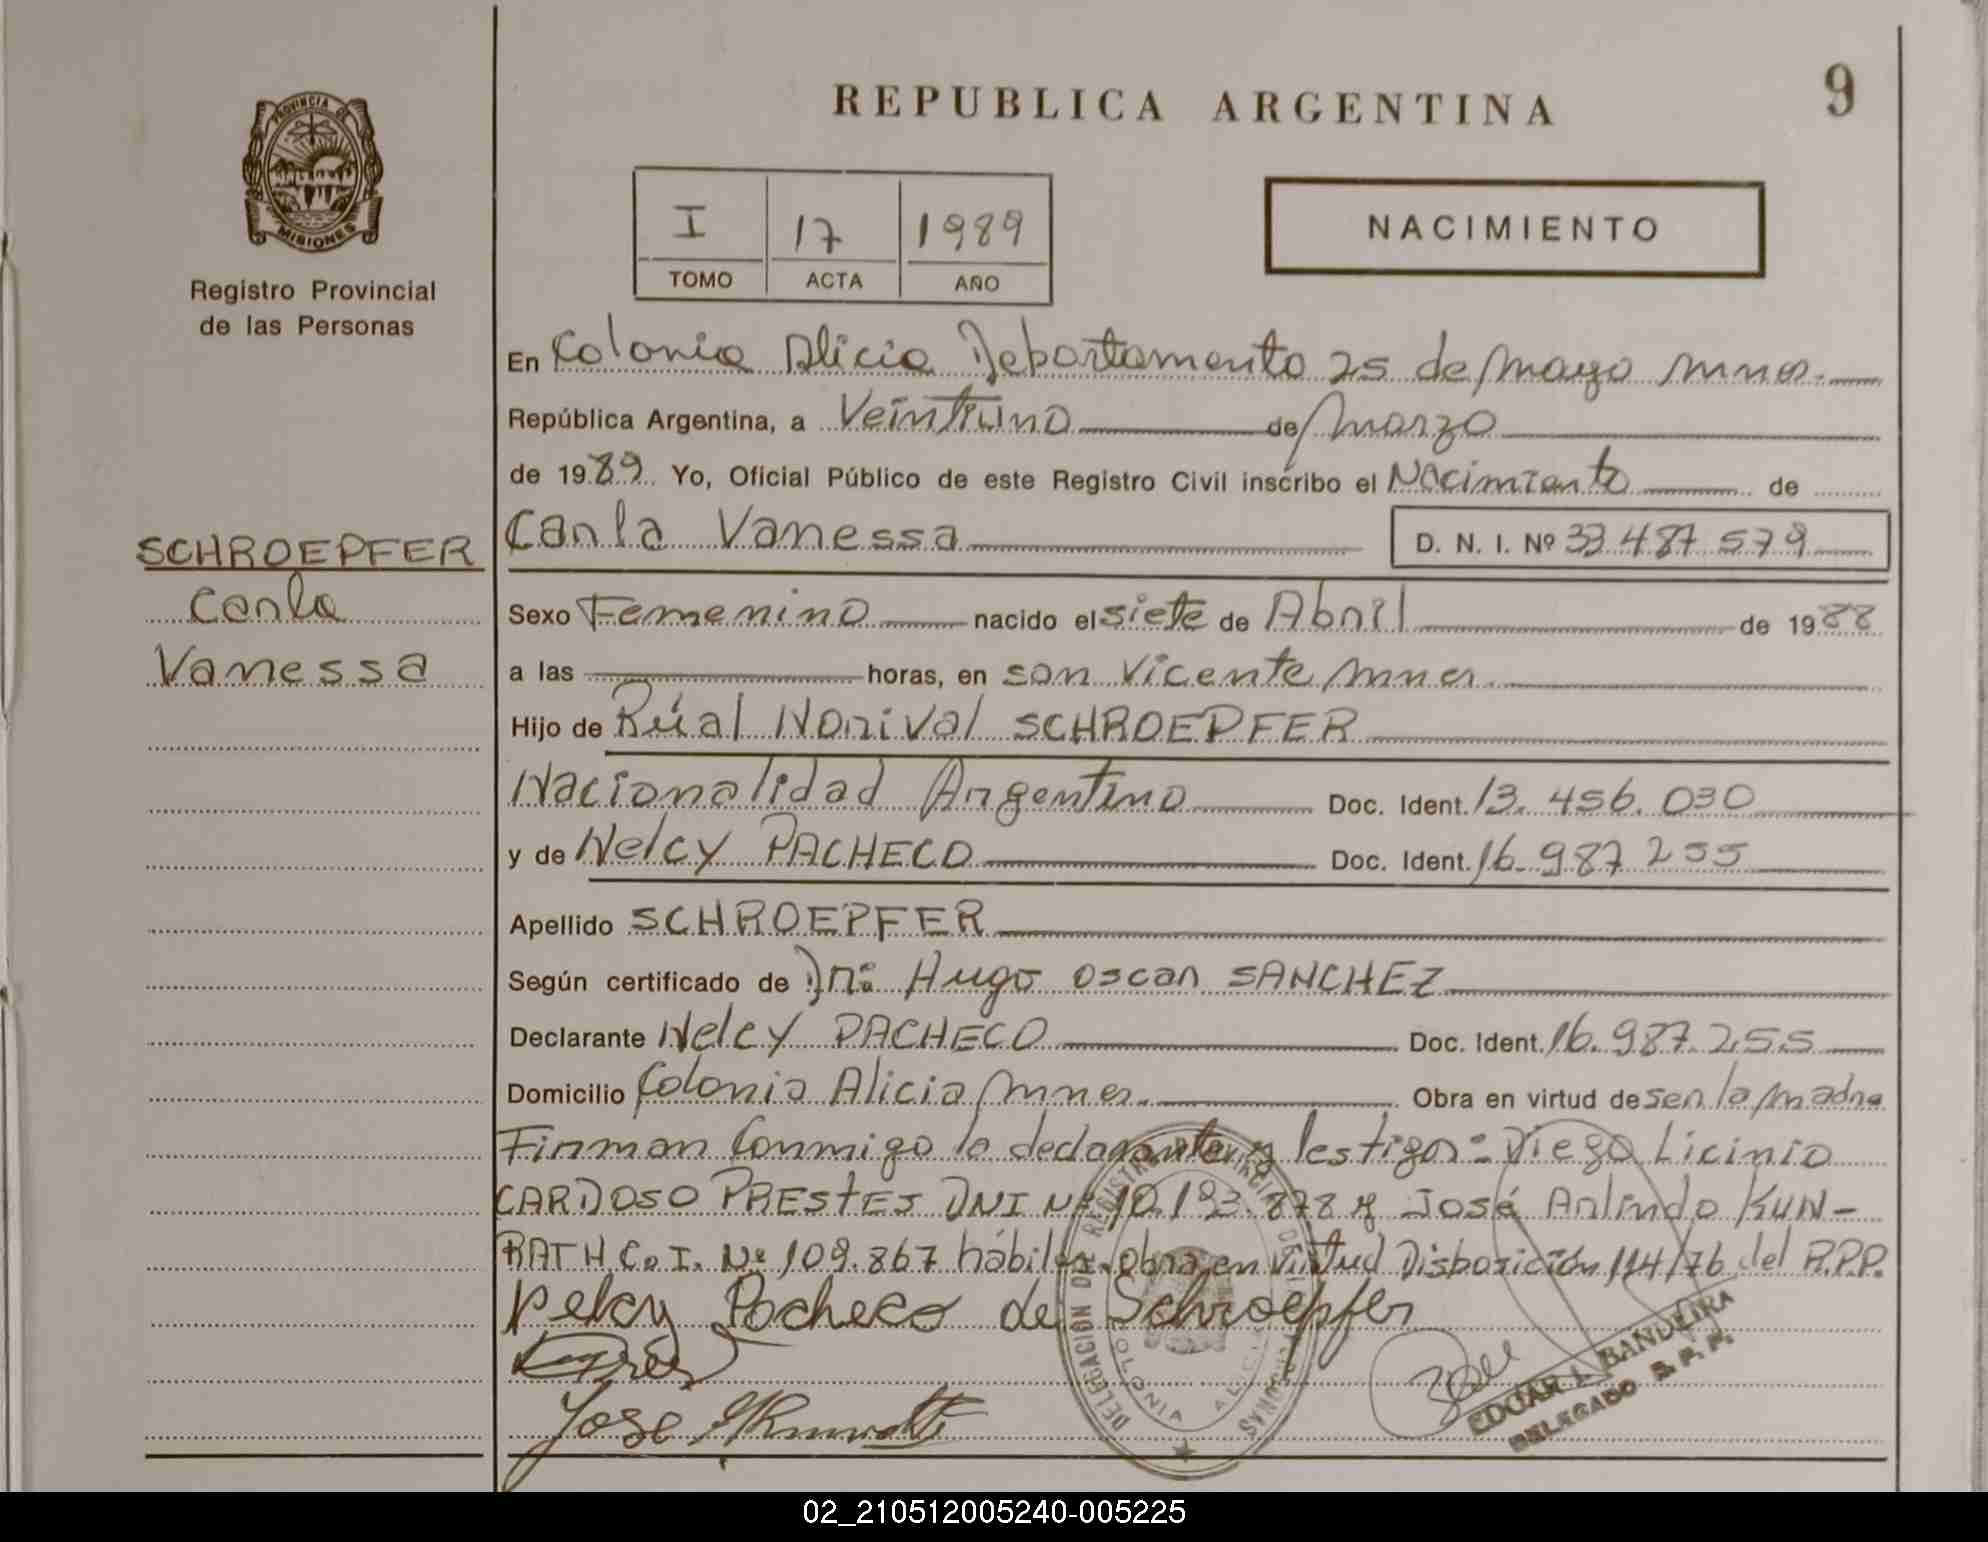 REPUBLICA ARGENTINA
9
PROVINCIA DE
MISIONES
Registro Provincial
de las Personas
I 17 1989
TOMO ACTA AÑO
NACIMIENTO
En Colonia Alicia Departamento 25 de Mayo Mnes.
República Argentina, a Veintiuno de Marzo
de 1989. Yo, Oficial Público de este Registro Civil inscribo el Nacimiento de
Carla Vanessa D. N. I. Nº 33 487 579
SCHROEPFER
Carla
Vanessa
Sexo Femenino nacido el siete de Abril de 1988
a las horas, en san Vicente Mnes.
Hijo de Rúal Norival SCHROEPFER
Nacionalidad Argentino Doc. Ident. 13.456.030
y de Nelcy PACHECO Doc. Ident. 16.987 255
Apellido SCHROEPFER
Según certificado de Dr: Hugo Oscar SANCHEZ
Declarante Nelcy PACHECO Doc. Ident. 16.987.255
Domicilio Colonia Alicia Mnes. Obra en virtud de ser la Madre
Firman Conmigo la declarante y testigos: Diego Licinio
CARDOSO PRESTES DNI Nº 10.193.878 y José Arlindo KUN-
RATH C.I. Nº 109.867 hábiles. obra en virtud Disposición 114/76 del R.P.P.
Nelcy Pacheco de Schroepfer
Jose
DELEGACION DE REGISTRO PROVINCIAL DE LAS PERSONAS
COLONIA ALICIA
EDGAR I. BANDEIRA
DELEGADO R. P. P.
02_210512005240-005225